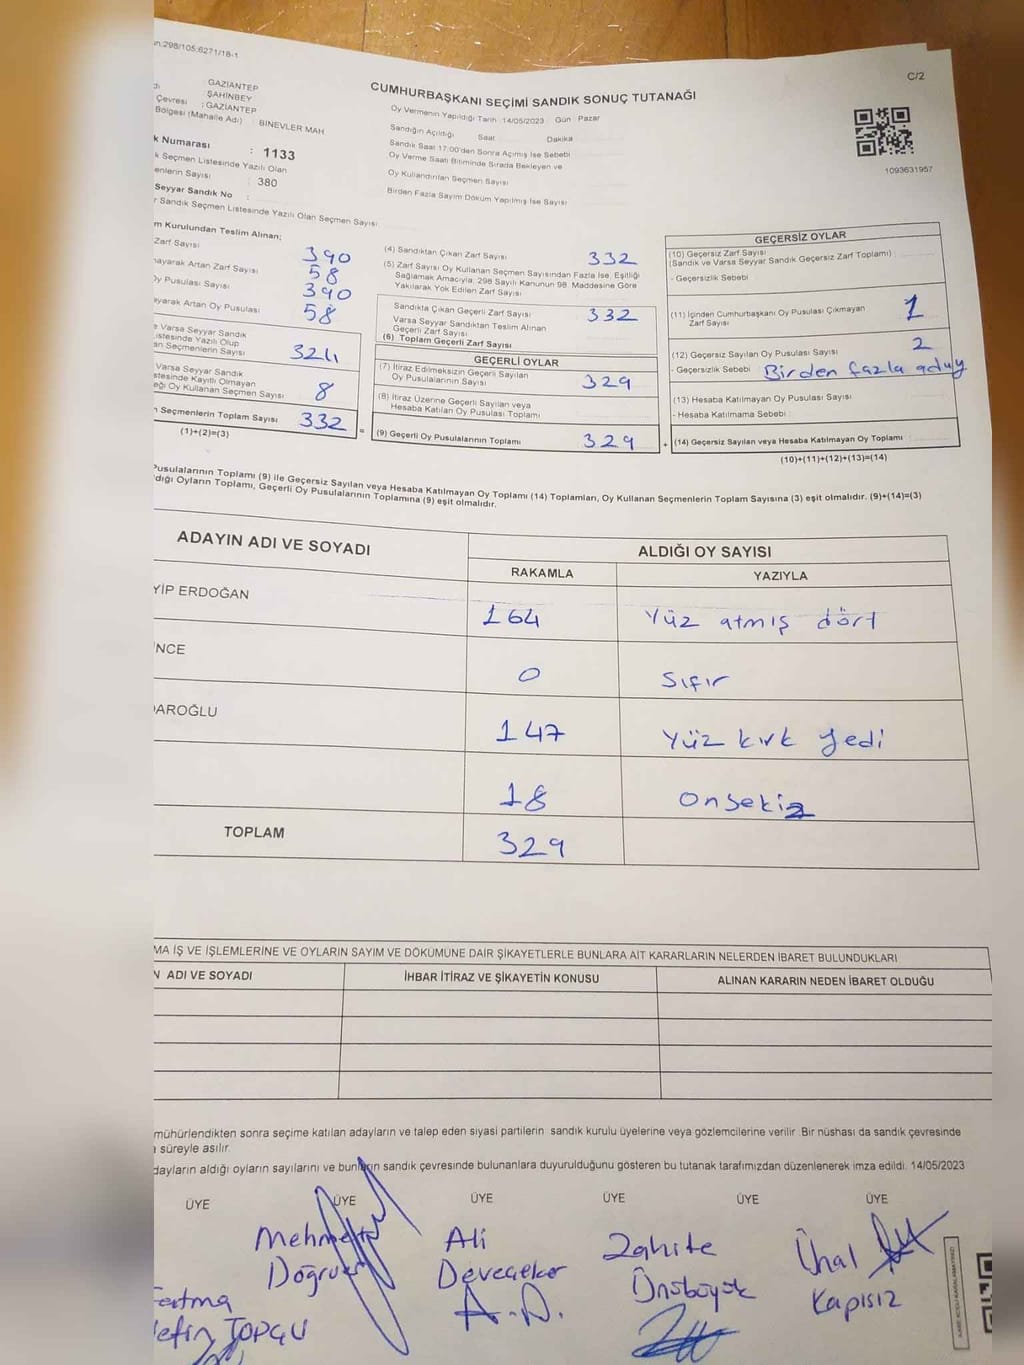 298/105;6271/18-1
C/2
: GAZİANTEP
: ŞAHİNBEY
Çevresi : GAZİANTEP
Bölgesi (Mahalle Adı) : BİNEVLER MAH
k Numarası : 1133
k Seçmen Listesinde Yazılı Olan
enlerin Sayısı : 380
Seyyar Sandık No :
r Sandık Seçmen Listesinde Yazılı Olan Seçmen Sayısı
CUMHURBAŞKANI SEÇİMİ SANDIK SONUÇ TUTANAĞI
Oy Vermenin Yapıldığı Tarih :14/05/2023 Gün Pazar
Sandığın Açıldığı Saat Dakika
Sandık Saat 17:00'den Sonra Açılmış İse Sebebi
Oy Verme Saati Bitiminde Sırada Bekleyen ve
Oy Kullandırılan Seçmen Sayısı
Birden Fazla Sayım Döküm Yapılmış İse Sayısı
1093631957
m Kurulundan Teslim Alınan;
Zarf Sayısı 390
ayarak Artan Zarf Sayısı 58
y Pusulası Sayısı 390
yarak Artan Oy Pusulası 58
e Varsa Seyyar Sandık
istesinde Yazılı Olup
an Seçmenlerin Sayısı 324
Varsa Seyyar Sandık
stesinde Kayıtlı Olmayan
eği Oy Kullanan Seçmen Sayısı 8
n Seçmenlerin Toplam Sayısı 332
(1)+(2)=(3)
(4) Sandıktan Çıkan Zarf Sayısı 332
(5) Zarf Sayısı Oy Kullanan Seçmen Sayısından Fazla İse, Eşitliği
Sağlamak Amacıyla, 298 Sayılı Kanunun 98. Maddesine Göre
Yakılarak Yok Edilen Zarf Sayısı
Sandıkta Çıkan Geçerli Zarf Sayısı 332
Varsa Seyyar Sandıktan Teslim Alınan
Geçerli Zarf Sayısı
(6) Toplam Geçerli Zarf Sayısı
GEÇERLİ OYLAR
(7) İtiraz Edilmeksizin Geçerli Sayılan
Oy Pusulalarının Sayısı 329
(8) İtiraz Üzerine Geçerli Sayılan veya
Hesaba Katılan Oy Pusulası Toplamı
= (9) Geçerli Oy Pusulalarının Toplamı 329
GEÇERSİZ OYLAR
(10) Geçersiz Zarf Sayısı
(Sandık ve Varsa Seyyar Sandık Geçersiz Zarf Toplamı)
- Geçersizlik Sebebi
(11) İçinden Cumhurbaşkanı Oy Pusulası Çıkmayan
Zarf Sayısı 1
(12) Geçersiz Sayılan Oy Pusulası Sayısı 2
- Geçersizlik Sebebi Birden fazla
(13) Hesaba Katılmayan Oy Pusulası Sayısı
- Hesaba Katılmama Sebebi
+ (14) Geçersiz Sayılan veya Hesaba Katılmayan Oy Toplamı
(10)+(11)+(12)+(13)=(14)
Pusulalarının Toplamı (9) ile Geçersiz Sayılan veya Hesaba Katılmayan Oy Toplamı (14) Toplamları, Oy Kullanan Seçmenlerin Toplam Sayısına (3) eşit olmalıdır. (9)+(14)=(3)
dığı Oyların Toplamı, Geçerli Oy Pusulalarının Toplamına (9) eşit olmalıdır.
ADAYIN ADI VE SOYADI
ALDIĞI OY SAYISI
RAKAMLA YAZIYLA
YİP ERDOĞAN 164 Yüz atmış dört
NCE 0 Sıfır
DAROĞLU 147 Yüz kırk yedi
18 Onsekiz
TOPLAM 329
MA İŞ VE İŞLEMLERİNE VE OYLARIN SAYIM VE DÖKÜMÜNE DAİR ŞİKAYETLERLE BUNLARA AİT KARARLARIN NELERDEN İBARET BULUNDUKLARI
N ADI VE SOYADI İHBAR İTİRAZ VE ŞİKAYETİN KONUSU ALINAN KARARIN NEDEN İBARET OLDUĞU
mühürlendikten sonra seçime katılan adayların ve talep eden siyasi partilerin sandık kurulu üyelerine veya gözlemcilerine verilir. Bir nüshası da sandık çevresinde
süreyle asılır.
dayların aldığı oyların sayılarını ve bunların sandık çevresinde bulunanlara duyurulduğunu gösteren bu tutanak tarafımızdan düzenlenerek imza edildi. 14/05/2023
ÜYE ÜYE ÜYE ÜYE ÜYE ÜYE
Mehmet
Ali
Deveceker
A.D.
Zahite
Ünsbüyük
Ünal
Kapısız
Fatma
TOPÇU